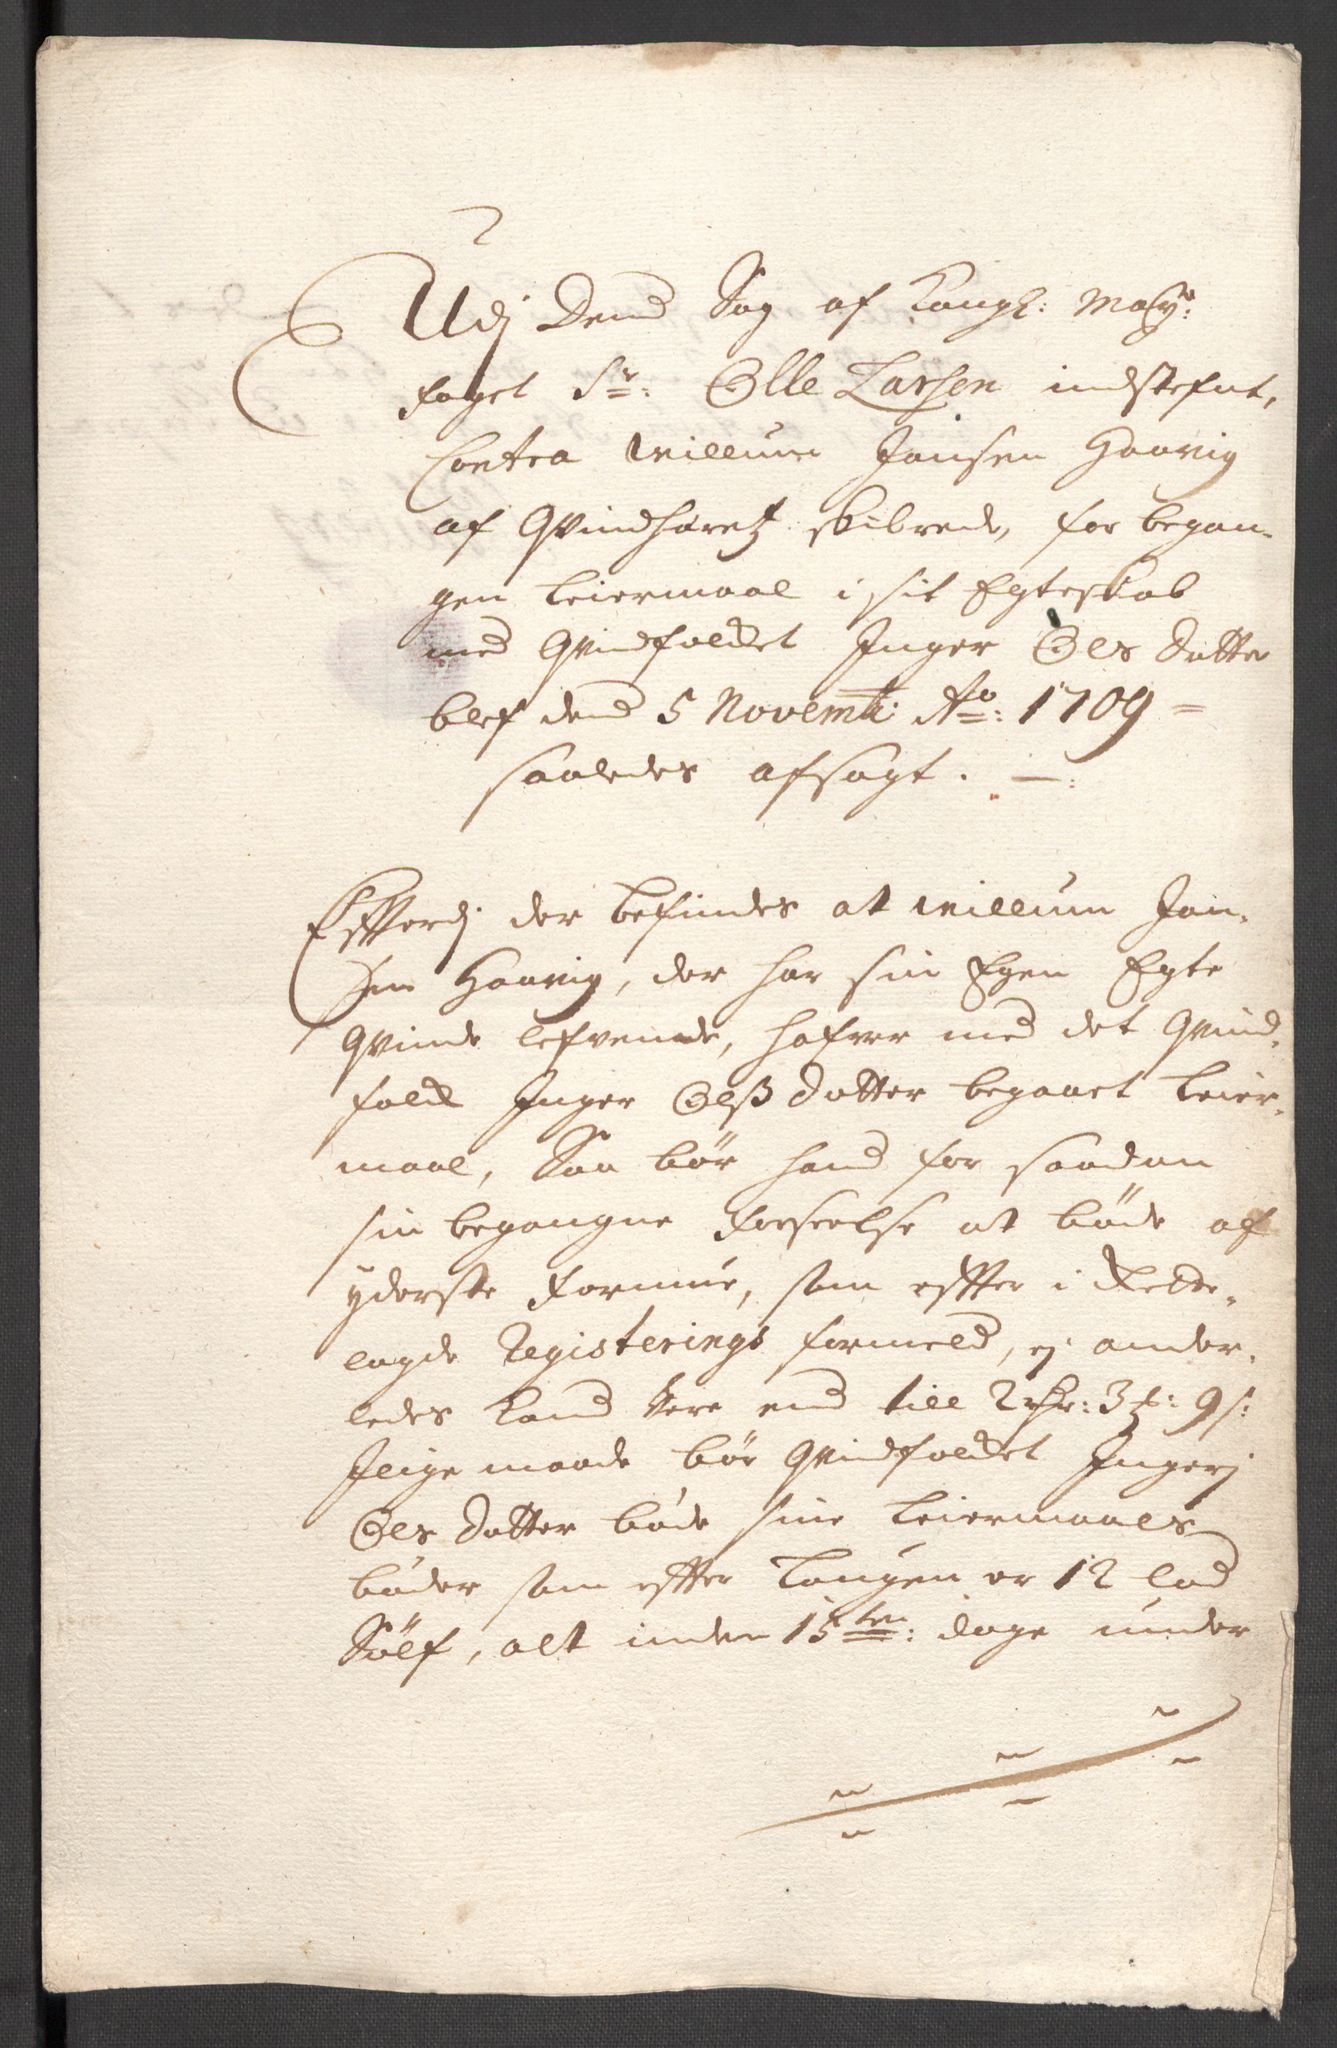 Udj Dend Sag af Kongl: May:
Foget Sr: Olle Larsen indstefnt,
Contra Willum Jansen Haavig
af Qvindhæretz skibrede, for began-
gen Leiermaal i sit Egteskab
med Qvindfolchet Inger Ols Datter
blef dend 5 Novemb: Ao: 1709 =
saaledes afsagt. —:
Efterdj der befindes at Willum Jan-
sen Haavig, der har sin Egen Egte
Qvinde lefvende, hafver med det Qvind-
folch Inger Olß Datter begaaet Leier-
maal, Saa bør hand for saadan
sin begangne Forseelse at bøde af
yderste Formue, som efter i Rette-
lagde Registerings formeld, ej ander-
ledes kand være end till 2 rdr: 3 #: 9 s:
Jlige maade bør Qvindfolchet Ingerj
Ols Datter bøde sine Leiermaals
bøder som efter Laugen er 12 lod
Sølf, alt inden 15ten: dage under